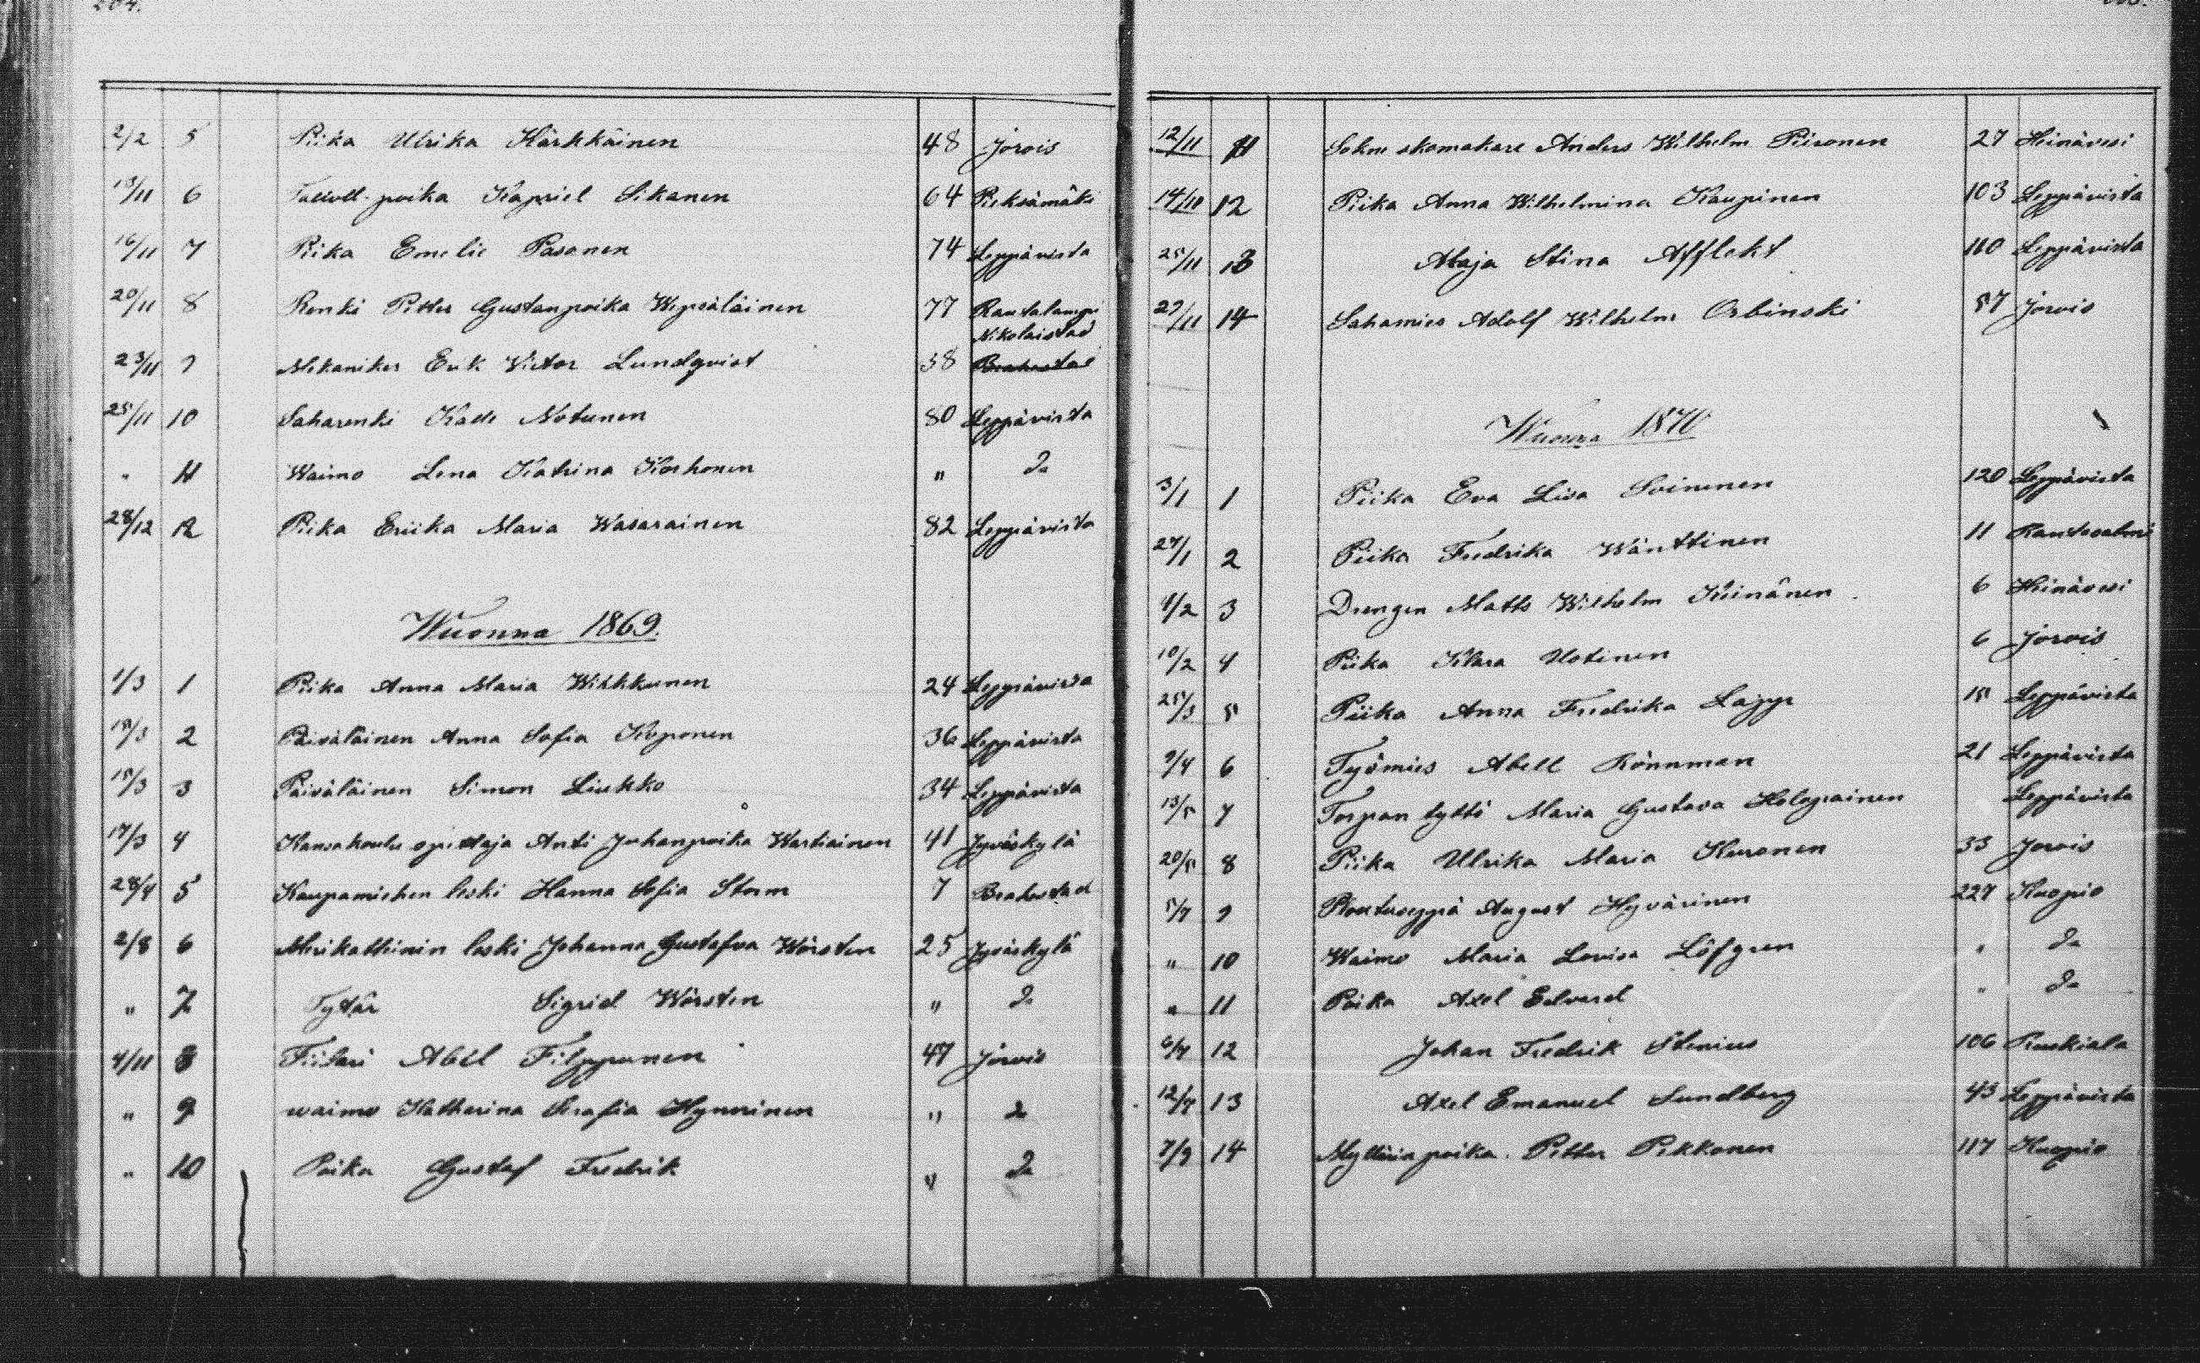 204.
2/2 5 Piika Ulrika Härkkäinen 48 Jorois
13/11 6 poika Kapriel Sikanen 64 Pieksämäki
16/11 7 Piika Emelie Pasonen 74 Leppävirta
20/11 8 Renki Petter Gustaupoika Wepsäläinen 77 Rautalampi
Nikolaistad
23/11 9 Mekaniker Erik Victor Lundqvist 58 Brahestad
25/11 10 Saharenki Kalle Notunen 80 Leppävirta
" 11 Waimo Lena Katrina Korhonen " Do
28/12 12 Piika Eriika Maria Wasarainen 82 Leppävirta
Wuonna 1869.
1/3 1 Piika Anna Maria Wihkkunen 24 Leppävirta
15/3 2 Päiväläinen Anna Sofia Koponen 36 Leppävirta
15/3 3 Päiväläinen Simon Liukko 34 Leppävirta
17/3 4 Kansakoulu opettaja Anti Juhanpoika Wartiainen 41 Jyväskylä
28/4 5 Kaupamiehen leski Hanna Sofia Storm 7 Brahestad
2/8 6 leski Johanna Gustafva Wörsten 25 Jyväskylä
" 7 Tytär Sigrid Wörsten " Do
4/11 8 Fiilari Abel Filppunen 47 Jorois
" 9 waimo Katharina Serafia Hynninen " Do
" 10 Poika Gustaf Fredrik " Do
12/11 11 Anders Wilhelm Piironen 27 Heinävesi
14/11 12 Piika Anna Wilhelmina Kaupinen 103 Leppävirta
25/11 13 Maja Stina Afflekt 110 Leppävirta
27/11 14 Sahamies Adolf Wilhelm Orbinski 57 Jorois
Wuonna 1870
3/1 1 Piika Eva Lisa Soininen 120 Leppävirta
27/1 2 Piika Fredrika Wänttinen 11 Rantasalmi
1/2 3 Drengen Matts Wilhelm Kiinänen 6 Heinävesi
10/2 4 Piika Klara Uotinen 6 Jorois
25/3 5 Piika Anna Fredrika Lappi 15 Leppävirta
9/4 6 Työmies Abell Rönnman 21 Leppävirta
13/5 7 Torpan tyttö Maria Gustava Holopainen Leppävirta
20/5 8 Piika Ulrika Maria Kuronen 33 Jorois
5/7 9 August Hyvärinen 227 Kuopio
" 10 Waimo Maria Lovisa Löfgren " Do
" 11 Poika Axel Edvard " Do
6/7 12 Johan Fredrik Stenius 106 Ruskiala
12/7 13 Axel Emanuel Sundberg 43 Leppävirta
7/9 14 Myllärin poika Petter Pekkonen 117 Kuopio